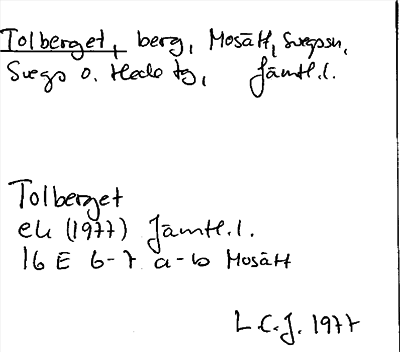 Tolberget, berg, Mosätt, Svegssn,
Svegs o. Hede tg, Jämtl.l.
Tolberget
ek (1977) Jämtl.l.
16 E 6-7 a-b Mosätt
L.C.J. 1977